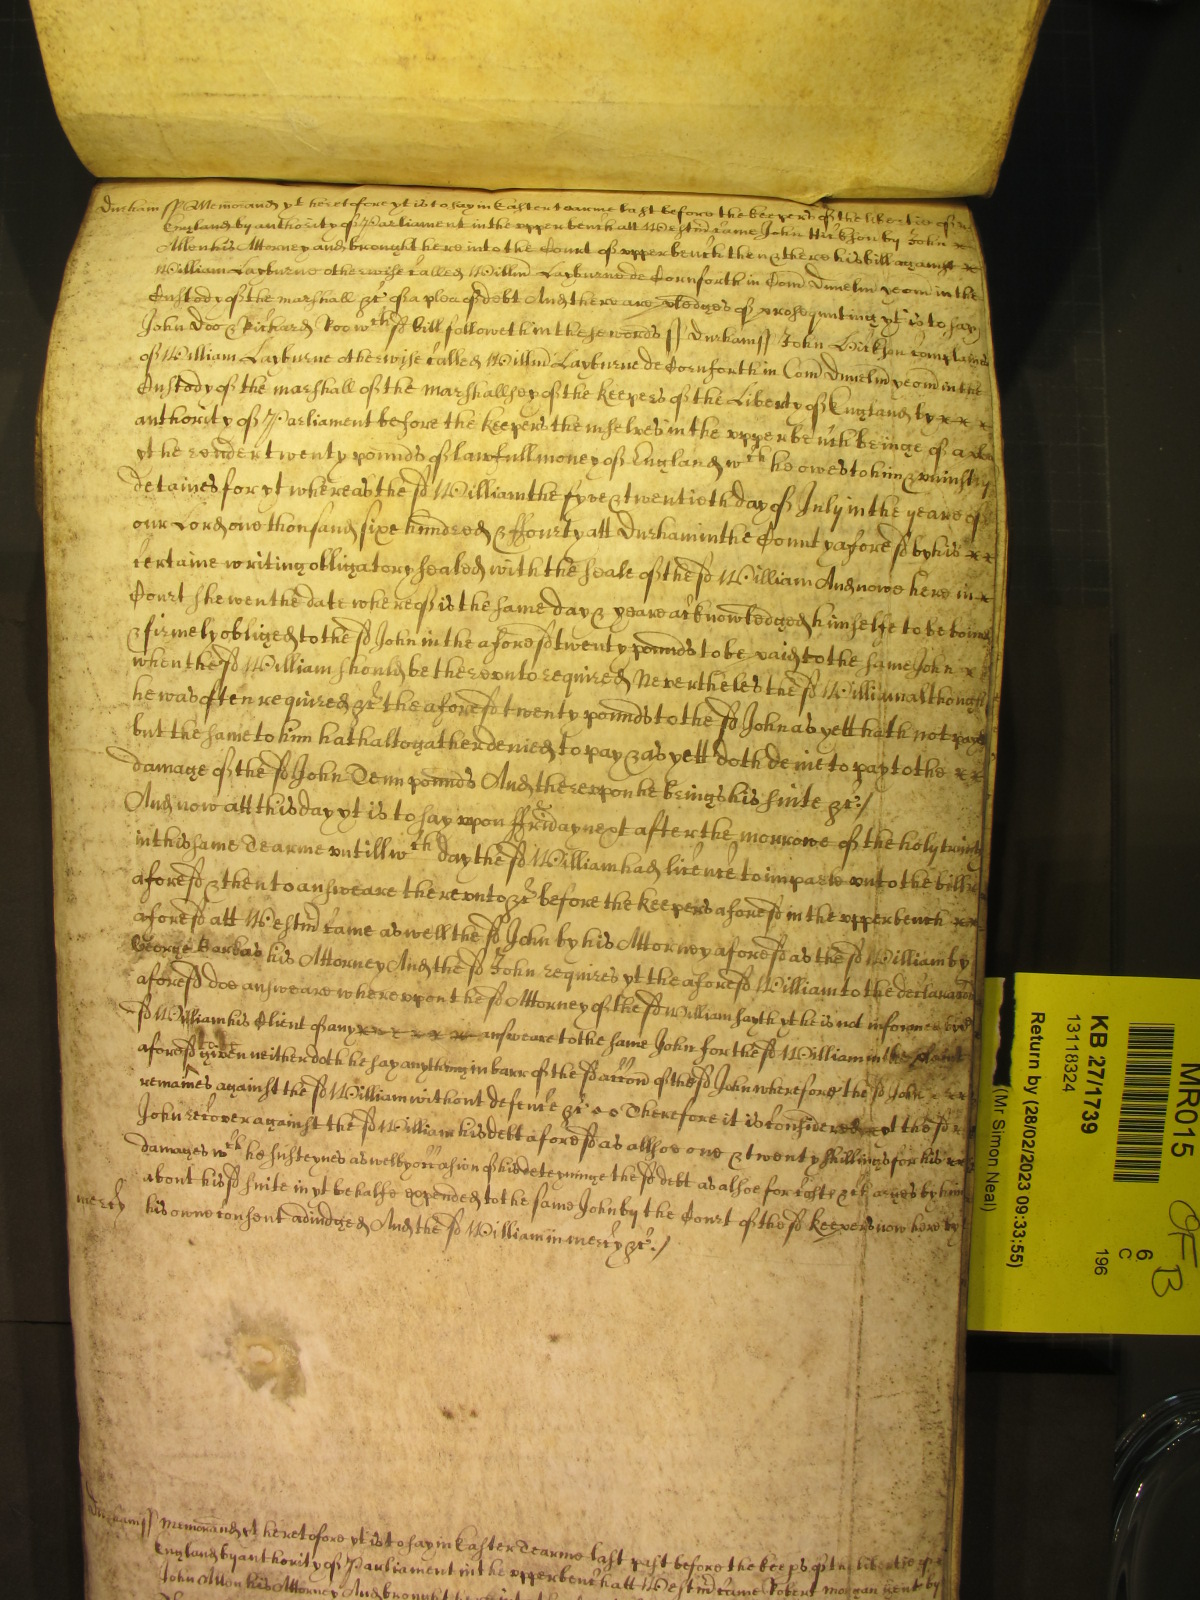 Durham ss Memorand yt heretofore yt is to say in Easter tearme last before the keepers of the liberties of
England by authority of Parliament in the upper bench att Westmr came John Hickson by John
Allen his Attorney and brought here into the Court of upper bench then & there his bill against
William Layburne otherwise called Willm Layburne de Cornforth in Com Dunelm yeom in the
Custody of the marshall &c of a plea of debt And there are pledges of prosequuting yt is to say
John Doo & Richard Roo wch sd bill followeth in these words ss Durham ss John Hickson complaines
of William Layburne otherwise called Willm Layburne de Cornforth in Com Dunelm yeom in the
Custody of the marshall of the marshallsey of the keepers of the Liberty of England by
authority of Parliament before the keepers themselves in the upper bench beinge of a plea
yt he render twenty pounds of lawfull money of England wch he owes to him & uniustly
detaines for yt whereas the sd William the fyve & twentieth day of July in the yeare of
our Lord one thousand sixe hundred & ffourty att Durham in the County aforesd by his
certaine writing obligatory sealed with the seale of the sd William And nowe here in
Court shewen the date whereof is the same day & yeare acknowledged himselfe to be bound
& firmely obliged to the sd John in the aforesd twenty pounds to be paid to the same John
when the sd William should be thereunto required Neverthelesse the sd William although
he was often required &c the aforesd twenty pounds to the sd John as yett hath not payd
but the same to him hath altogather denied to pay & as yett doth denie to pay to the
damage of the sd John Tenn pounds And thereupon he brings his suite &c /
And now att this day yt is to say upon ffriday next after the morrowe of the holy trinity
in this same Tearme untill wch day the sd William had licence to imparle unto the bill
aforesd & then to answeare thereunto &c before the keepers aforesd in the upper bench
aforesd att Westmr came as well the sd John by his Attorney aforesd as the sd William by
George Barkas his Attorney And the sd John requires yt the aforesd William to the declaracon
aforesd doe answeare whereupon the sd Attorney of the sd William sayth yt he is not informed by
sd William his Client of any answeare to the same John for the sd William in the plaint
aforesd to be given neither doth he say anything in barr of the sd accon of the sd John wherefore the sd John
remaines against the sd William without defence &c Therefore it is considered yt the sd
John recover against the sd William his debt aforesd as allsoe one & twenty shillings for his
damages wch he susteynes as well by occasion of his deteyninge the sd debt as alsoe for costs & charges by him
about his sd suite in yt behalfe expended to the same John by the Court of the sd keepers now here by
mercy his owne consent adiudged And the sd William in mercy &c /
Durham ss Memorand yt heretofore yt is to say in Easter Tearme last past before the keeps of the libertie of
England by authority of Parliament in the upper bench att Westmr came Robert Morgan gent by
John Allen his Attorney And brought here into
MR015
KB 27/1739
13118324
Return by (28/02/2023 09:33:55)
(Mr Simon Neal)
6
C
196
OFB